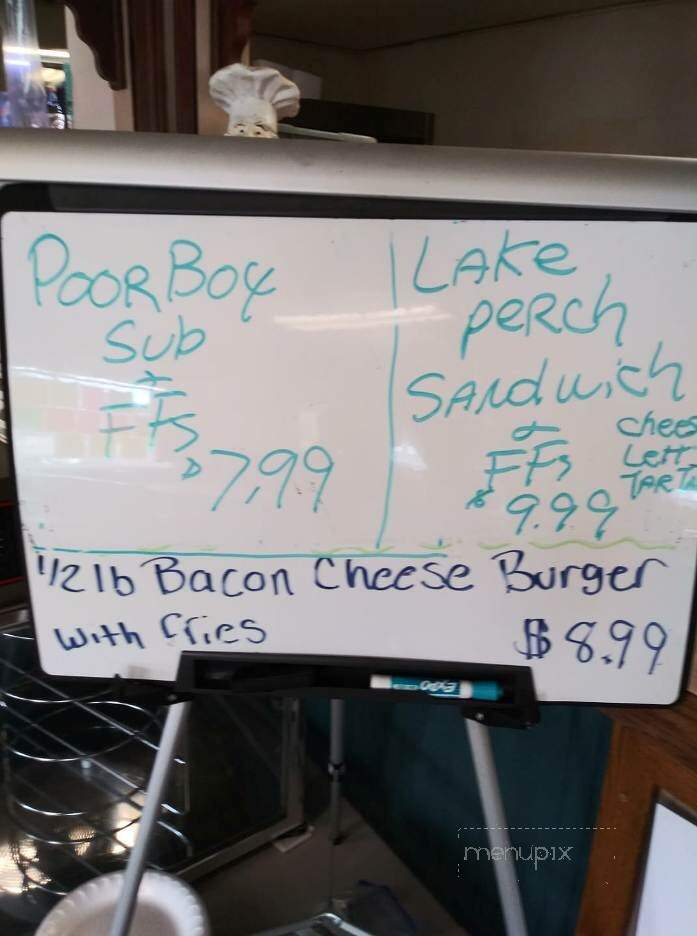 POOR BOY
SUB
&
FFs
$7.99
LAKE
PERCH
SANDWICH
&
FFs
$9.99
chees
Lett
TARTA
1/2 lb Bacon Cheese Burger
with fries $8.99
EXPO
menupix